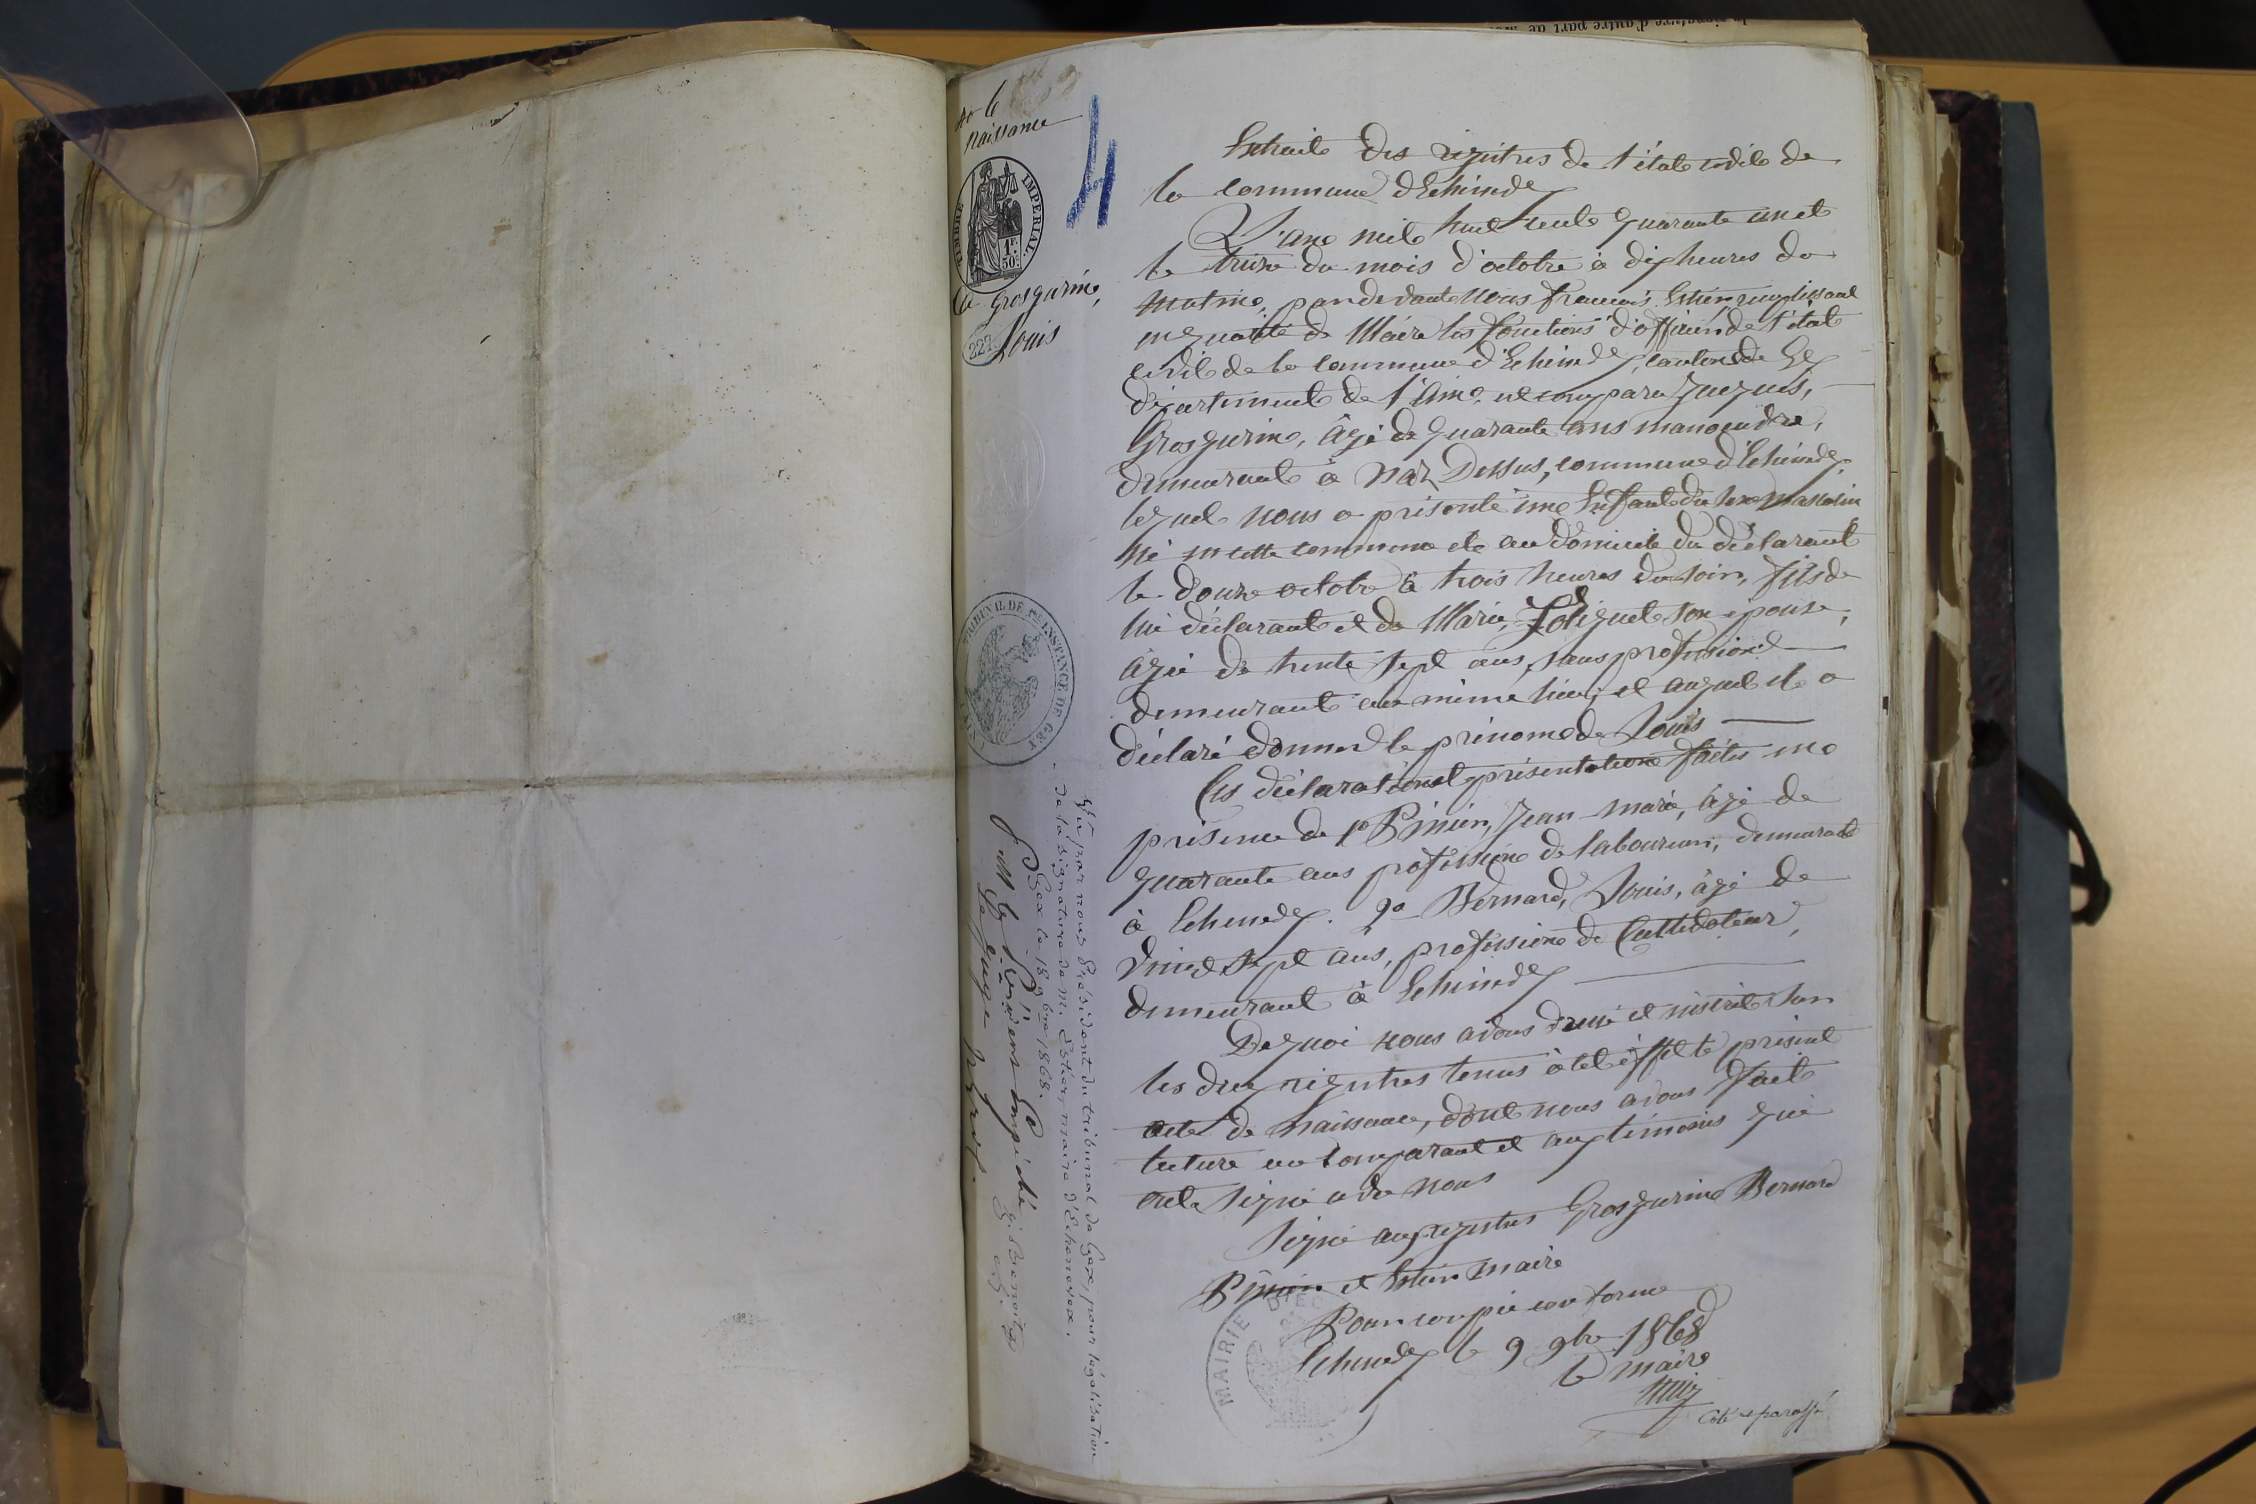 Naissance
4
TIMBRE IMPERIAL
1F. 50c.
De Grosgurin,
Louis
Extrait des registres de l'état civil de
la commune d'Echenevex
L'an mil huit cent quarante un et
le treize du mois d'octobre à dix heures du
matin, par devant nous François Estier remplissant
en qualité de Maire les fonctions d'officier de l'état
civil de la commune d'Echenevex, canton de Gex
département de l'Ain, est comparu Jacques,
Grosgurin, âgé de quarante ans manoeuvre,
demeurant à Naz Dessus, commune d'Echenevex,
lequel nous a présenté un Enfant du sexe Masculin
né en cette commune et au domicile du déclarant
le douze octobre à trois heures du soir, fils de
lui déclarant et de Marie son épouse,
âgée de trente sept ans, sans profession
demeurant au même lieu; et auquel il a
déclaré donner le prénom de Louis
Ces déclaration et présentation faites en
présence de 1o Jean-Marie, âgé de
quarante ans profession de laboureur, demeurant
à Echenevex. 2o Bernard, Louis, âgé de
vingt sept ans, profession de Cultivateur,
demeurant à Echenevex
De quoi nous avons dressé et inscrit sur
les deux registres tenus à cet effet le présent
acte de naissance, dont nous avons fait
lecture au comparant et aux témoins qui
ont signé avec nous
Signé aux registres Grosgurin Bernard
et Estier Maire
Pour copie conforme
Echenevex le 9 9bre 1868
le maire
Coté et paraffé
MAIRIE
TRIBUNAL DE 1ere INSTANCE DE GEX
Vu par nous Président du tribunal de Gex, pour légalisation
de la signature de M. Estier, maire d'Echenevex.
Gex le 18 9bre 1868.
P. M. le Président empêché
Le Juge